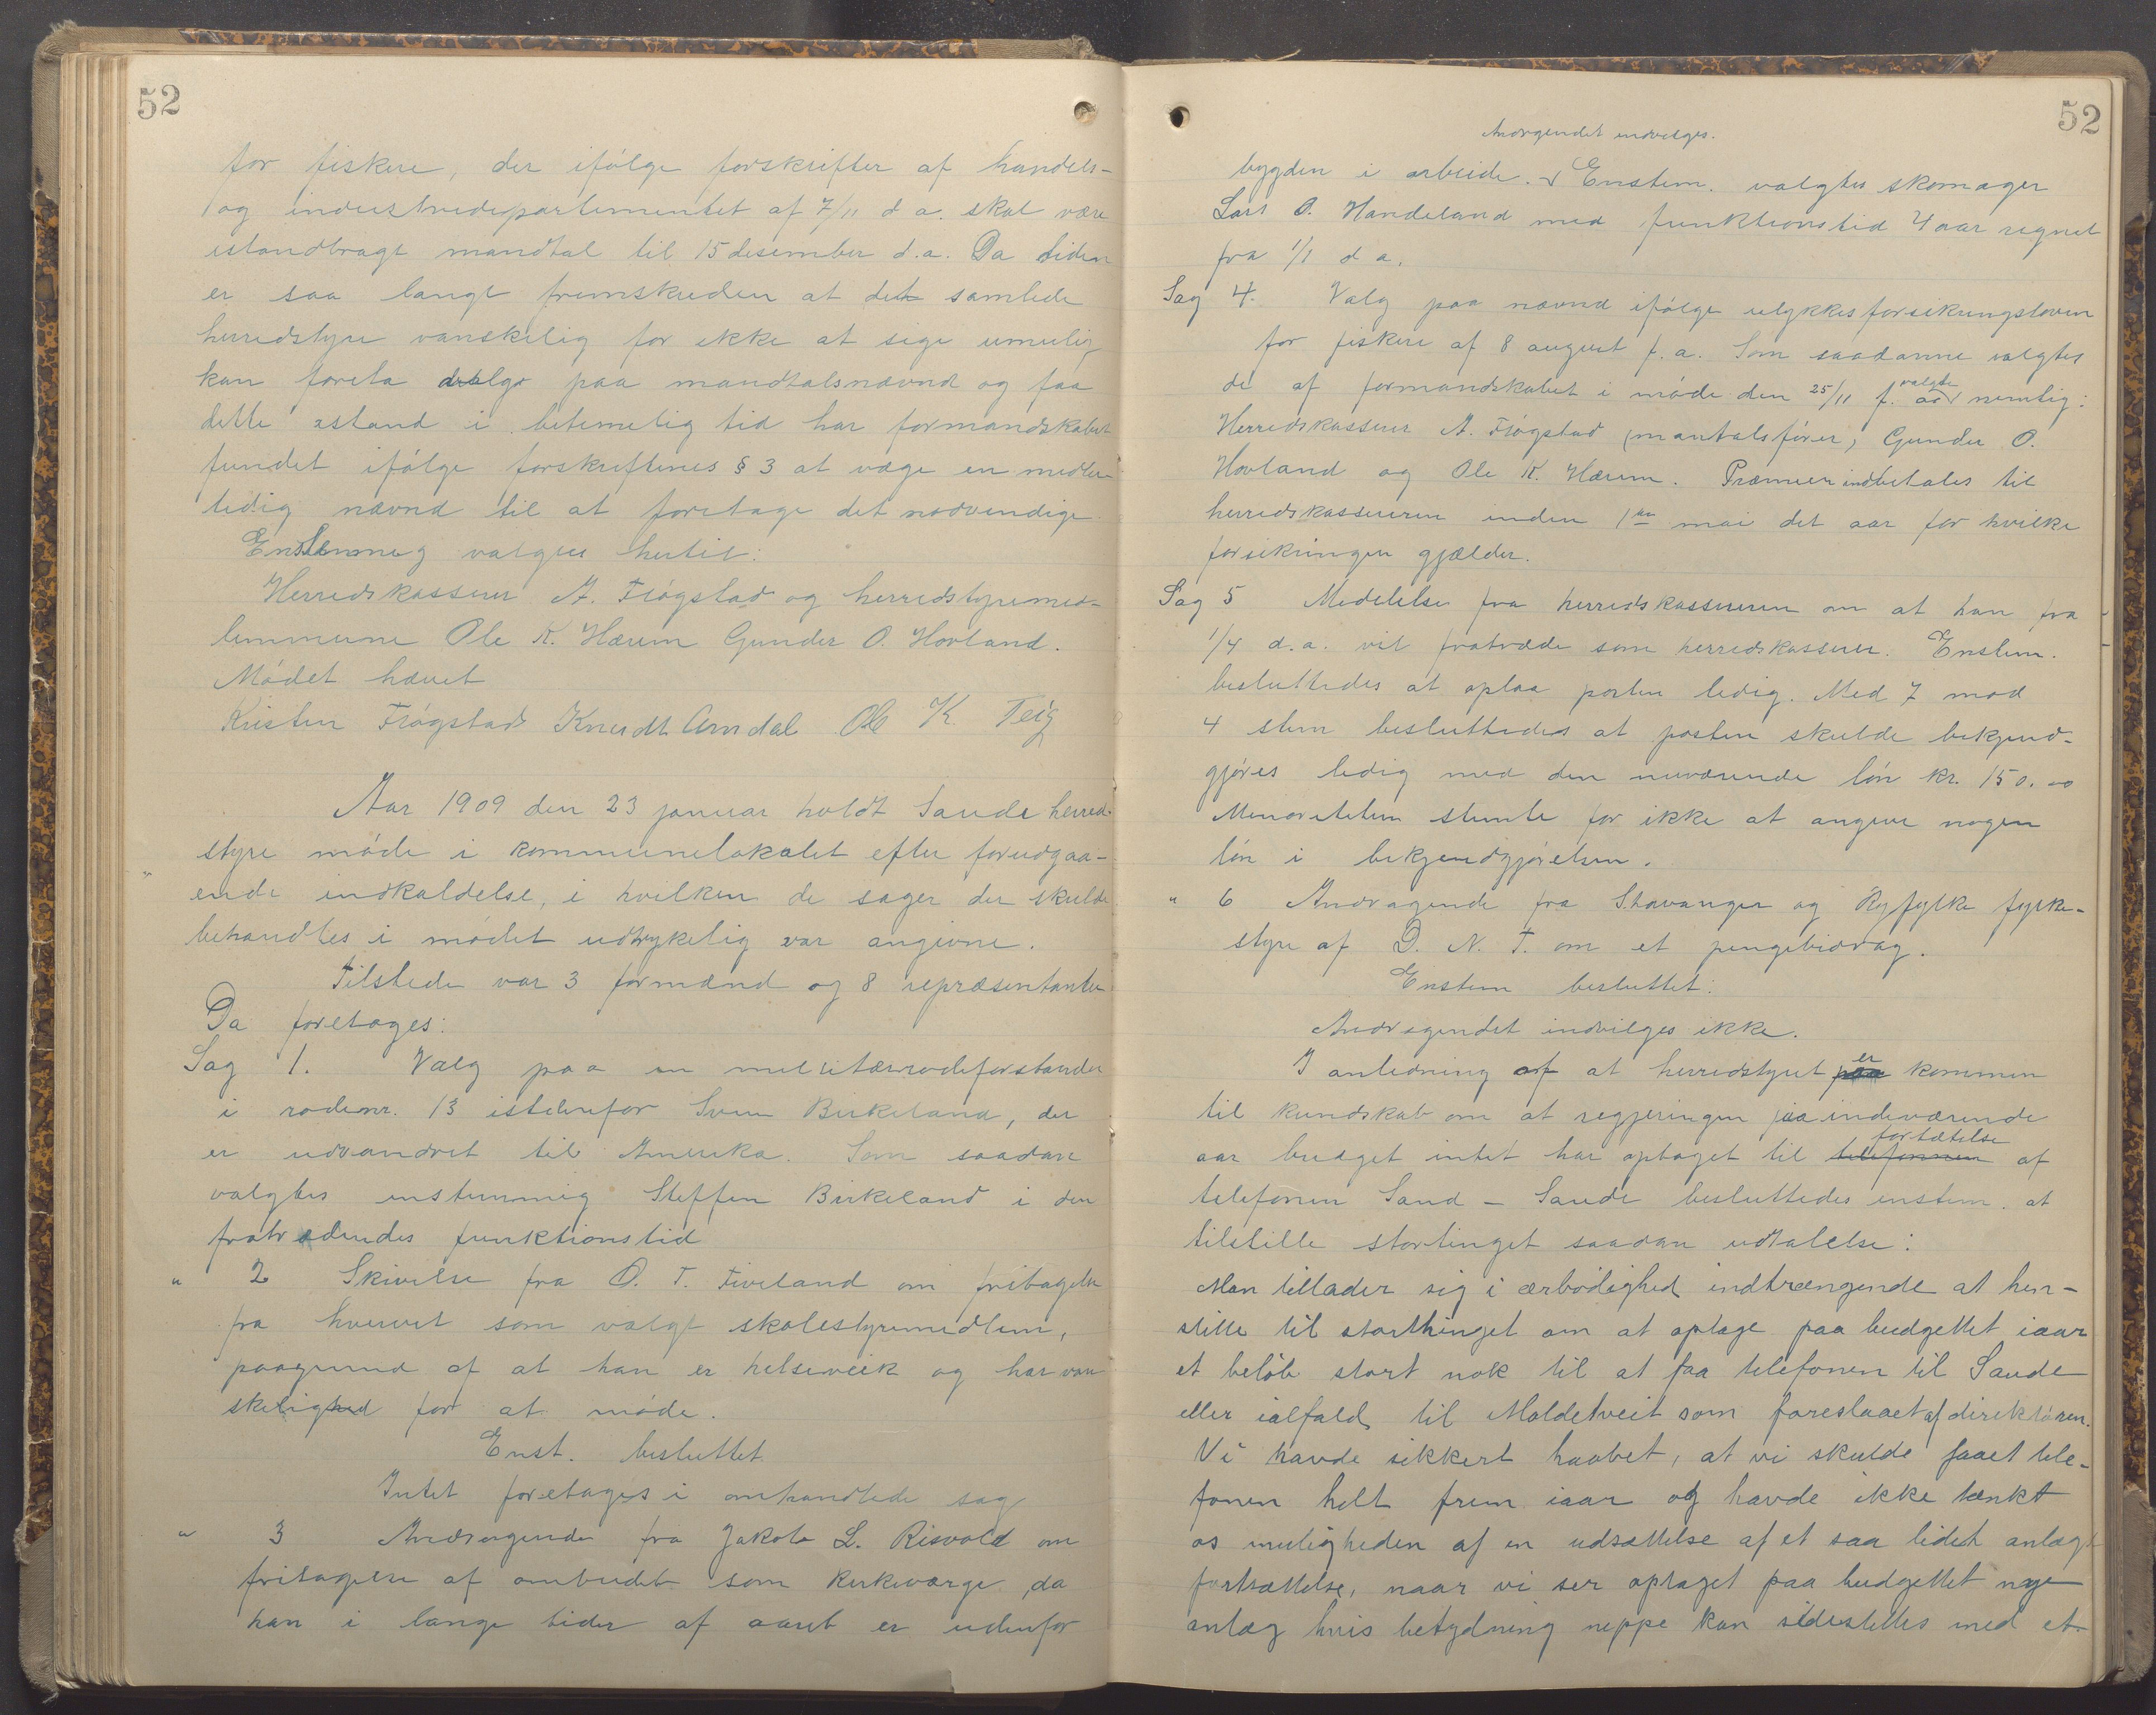 52
for fiskere, der ifølge forskrifter af handels-
og industridepartementet af 7/11 d a. skal være
istandbragt mandtal til 15 desember d.a. Da tiden
er saa langt fremskreden at det samlede
herredstyre vanskelig for ikke at sige umulig
kan foreta valgr paa mandtalsnævnd og faa
dette istand i betimelig tid har formandskabet
fundet ifølge forskrifternes § 3 at vælge en midler-
tidig nævnd til at foretage det nødvendige
Enstemmig valgtes hertil:
Herredskasserer A. Fløgstad og herredstyremed-
lemmerne Ole K. Hærem Gunder O. Hovland.
Mødet hævet
Kristen Fløgstad Knudt Amdal Ole K. Teig
Aar 1909 den 23 januar holdt Saude herred-
styre møde i kommunelokalet efter forudgaa-
ende indkaldelse, i hvilken de sager der skulde
behandles i mødet udtrykelig var angivne.
Tilstede var 3 formænd og 8 repræsentanter
Da foretages:
Sag 1. Valg paa en militærrodeforstander
i rodenr. 13 istedenfor Sven Birkeland, der
er udvandret til Amerika. Som saadan
valgtes enstemmig Steffen Birkeland i den
fratrædendes funktionstid
" 2 Skivelse fra O. T. Fiveland om fritagelse
fra hvervet som valgt skolestyremedlem,
paagrund af at han er helseveik og har van
skelighed for at møde.
Enst. besluttet
Intet foretages i omhandlede sag
" 3 Andragende fra Jakob L. Risvold om
fritagelse af ombudet som kirkeværge, da
han i lange tider af aaret er udenfor
52
Andragendet indvilges.
bygden i arbeide. v Enstem. valgtes skomager
Lars O. Handeland med funktionstid 4 aar regnet
fra 1/1 d a.
Sag 4. Valg paa nævnd ifølge ulykkesforsikringsloven
for fiskere af 8 august f.a. Som saadanne valgtes
de af formandskabet i møde den 25/11 f. aar valgte nemlig:
Herredskasserer A. Fløgstad (mantalsfører) Gunder O.
Hovland og Ole K. Hærem. Præmien indbetales til
herredskassereren inden 1ste mai det aar for hvilke
forsikringen gjælder.
Sag 5 Medelelse fra herredskassereren om at han fra
1/4 d.a. vil fratræde som herredskasserer. Enstem.
besluttedes at opslaa posten ledig. Med 7 mod
4 stem besluttedes at posten skulde bekjend-
gjøres ledig med den nuværende løn kr. 150.00
Menoriteten stemte for ikke at angive nogen
løn i bekjendgjørelsen.
" 6 Andragende fra Stavanger og Ryfylke fylke-
styre af D. N. T. om et pengebidrag.
Enstem besluttet:
Andragendet indvilges ikke.
I anledning af at herredstyret er kommen
til kundskab om at regjeringen paa indeværende
aar budget intet har optaget til telefonnen fortætelse af
telefonen Sand - Saude besluttedes enstem. at
tilstille stortinget saadan udtalelse:
Man tillader sig i ærbødighed indtrængende at hen-
stille til storthinget om at optage paa budgettet iaar
et beløb stort nok til at faa telefonen til Saude
eller ialfald til Maldetveit som foreslaaet af direktøren.
Vi havde sikkert haabet, at vi skulde faaet tele-
fonen helt frem iaar og havde ikke tænkt
os muligheden af en udsættelse af et saa lidet anlægs
fortsættelse, naar vi ser optaget paa budgettet nye
anlæg hvis betydning neppe kan sidestilles med et